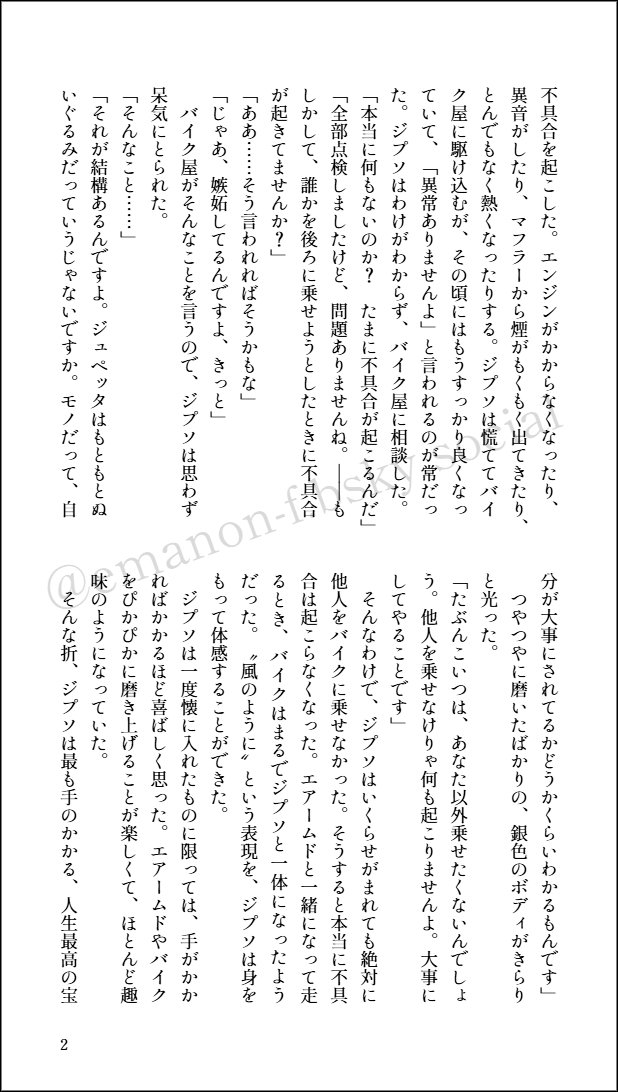 不具合を起こした。エンジンがかからなくなったり、
異音がしたり、マフラーから煙がもくもく出てきたり、
とんでもなく熱くなったりする。ジプソは慌ててバイ
ク屋に駆け込むが、その頃にはもうすっかり良くなっ
ていて、「異常ありませんよ」と言われるのが常だっ
た。ジプソはわけがわからず、バイク屋に相談した。
「本当に何もないのか？　たまに不具合が起こるんだ」
「全部点検しましたけど、問題ありませんね。――も
しかして、誰かを後ろに乗せようとしたときに不具合
が起きてませんか？」
「ああ……そう言われればそうかもな」
「じゃあ、嫉妬してるんですよ、きっと」
　バイク屋がそんなことを言うので、ジプソは思わず
呆気にとられた。
「そんなこと……」
「それが結構あるんですよ。ジュペッタはもともとぬ
いぐるみだっていうじゃないですか。モノだって、自
分が大事にされてるかどうかくらいわかるもんです」
　つやつやに磨いたばかりの、銀色のボディがきらり
と光った。
「たぶんこいつは、あなた以外乗せたくないんでしょ
う。他人を乗せなけりゃ何も起こりませんよ。大事に
してやることです」
　そんなわけで、ジプソはいくらせがまれても絶対に
他人をバイクに乗せなかった。そうすると本当に不具
合は起こらなくなった。エアームドと一緒になって走
るとき、バイクはまるでジプソと一体になったよう
だった。〝風のように〟という表現を、ジプソは身を
もって体感することができた。
　ジプソは一度懐に入れたものに限っては、手がかか
ればかかるほど喜ばしく思った。エアームドやバイク
をぴかぴかに磨き上げることが楽しくて、ほとんど趣
味のようになっていた。
　そんな折、ジプソは最も手のかかる、人生最高の宝
2
@emanon-f.bsky.social